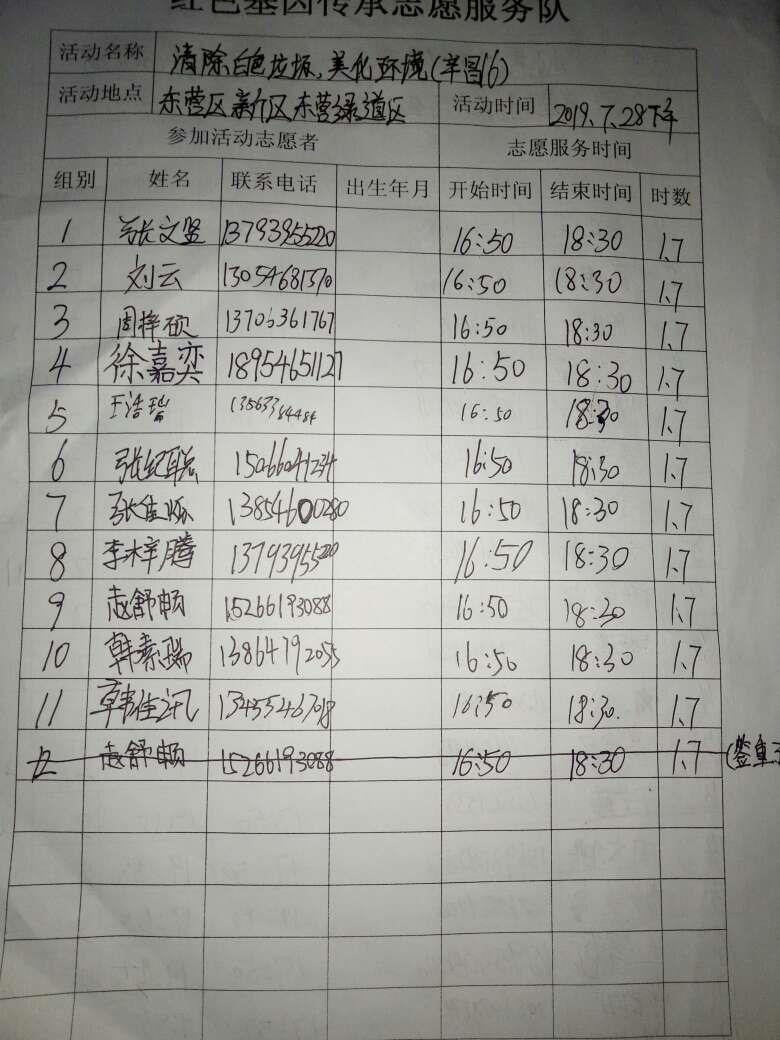 红色基因传承志愿服务队
活动名称 清除白色垃圾,美化环境(辛昌16)
活动地点 东营区新区东营绿道区 活动时间 2019.7.28下午
参加活动志愿者 志愿服务时间
组别 姓名 联系电话 出生年月 开始时间 结束时间 时数
1 张文竖 13793955220 16:50 18:30 1.7
2 刘云 13054681370 16:50 18:30 1.7
3 周梓硕 13706361767 16:50 18:30 1.7
4 徐嘉奕 18954651127 16:50 18:30 1.7
5 王浩瑞 16:50 18:30 1.7
6 张纪聪 16:50 18:30 1.7
7 张佳 13854600280 16:50 18:30 1.7
8 李梓腾 16:50 18:30 1.7
9 赵舒畅 15266193088 16:50 18:30 1.7
10 韩素瑞 13864792055 16:50 18:30 1.7
11 韩佳讯 13455467018 16:50 18:30. 1.7
12 赵舒畅 15266193088 16:50 18:30 1.7 (签重了